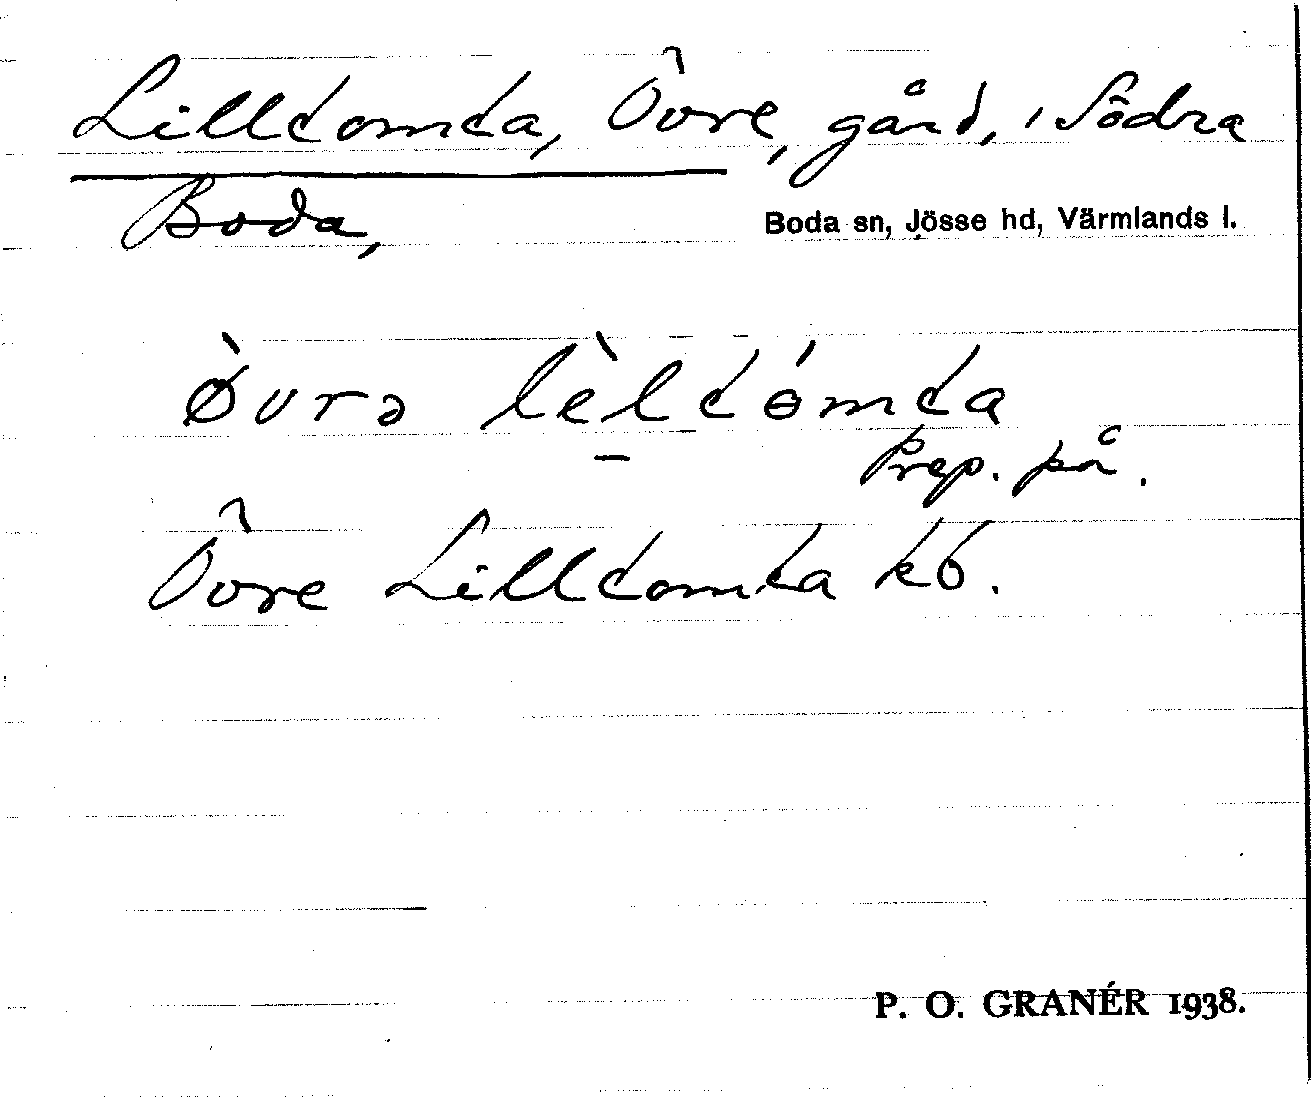 Lilltomta, Övre, gård, i Södra
Boda,
Boda sn, Jösse hd, Värmlands l.
Ø̀vrə lèltómta
Prep. på.
Övre Lilltomta kb.
P. O. GRANÉR 1938.